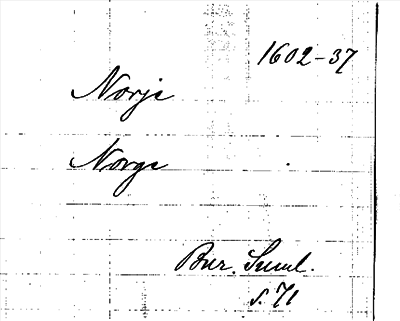 1602-37
Norje
Norge
Bur. Suml.
s. 71